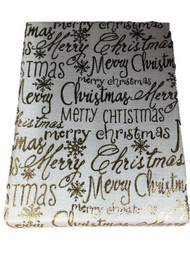 Merry Christmas
merry christmas
tmas Merry Christmas
Merry Christmas
MERRY CHRISTMAS
merry christmas
Merry Christmas
tmas Merry Chris
merry christmas
Christmas